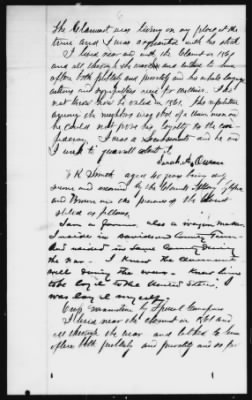 the Claimant was living on my place at the
time and I was acquainted with his
I lived near and with the Claimant in 1861
and all through the war and talked to him
often both publicly and privately and his whole language
actions and sympathies were for
not know how he voted in 1861. His reputation
among the neighbors was that of a Union man and
he could not prove his loyalty to the con
federacy. I was a and no one
I wish to about it.
Owens
Smith aged 60 years being duly
sworn and examined by the Claimants Attorney
and in the presence of the Claimant
states as follows.
I am a farmer, also a wagon maker.
I reside in Davidson County
And resided in same County during
the war. I knew the claimant
well during the war. Knew him
to be loyal to the United States. I
was loyal myself.
Cross examination by Special
I lived near the claimant in 1861 and
all through the war and talked to him
often both publicly and privately and so far